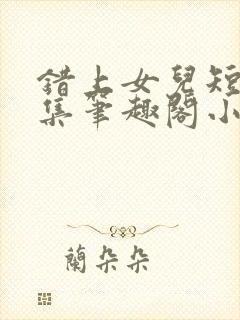 錯上女兒短
集筆趣閣小
蘭朵朵